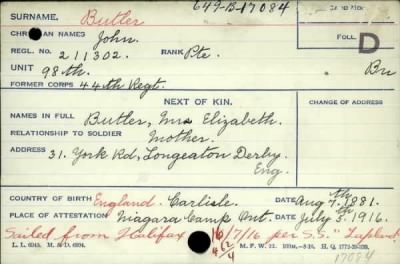 649-B-17084
SURNAME. Butler
CHRISTIAN NAMES John.
REGL. NO. 211302. RANK Pte.
UNIT 98th.
FORMER CORPS 44th Regt.
FOLL.
D
NEXT OF KIN.
CHANGE OF ADDRESS
NAMES IN FULL Butler, Mrs Elizabeth.
RELATIONSHIP TO SOLDIER Mother.
ADDRESS 31. York Rd, Longeaton Derby.
Eng.
COUNTRY OF BIRTH England. Carlisle. DATE Aug 7th. 1881.
PLACE OF ATTESTATION Niagara Camp Ont. DATE July 3rd. 1916.
Sailed from Halifax 16/7/16 per S.S.
M. F. W. 22.
17084